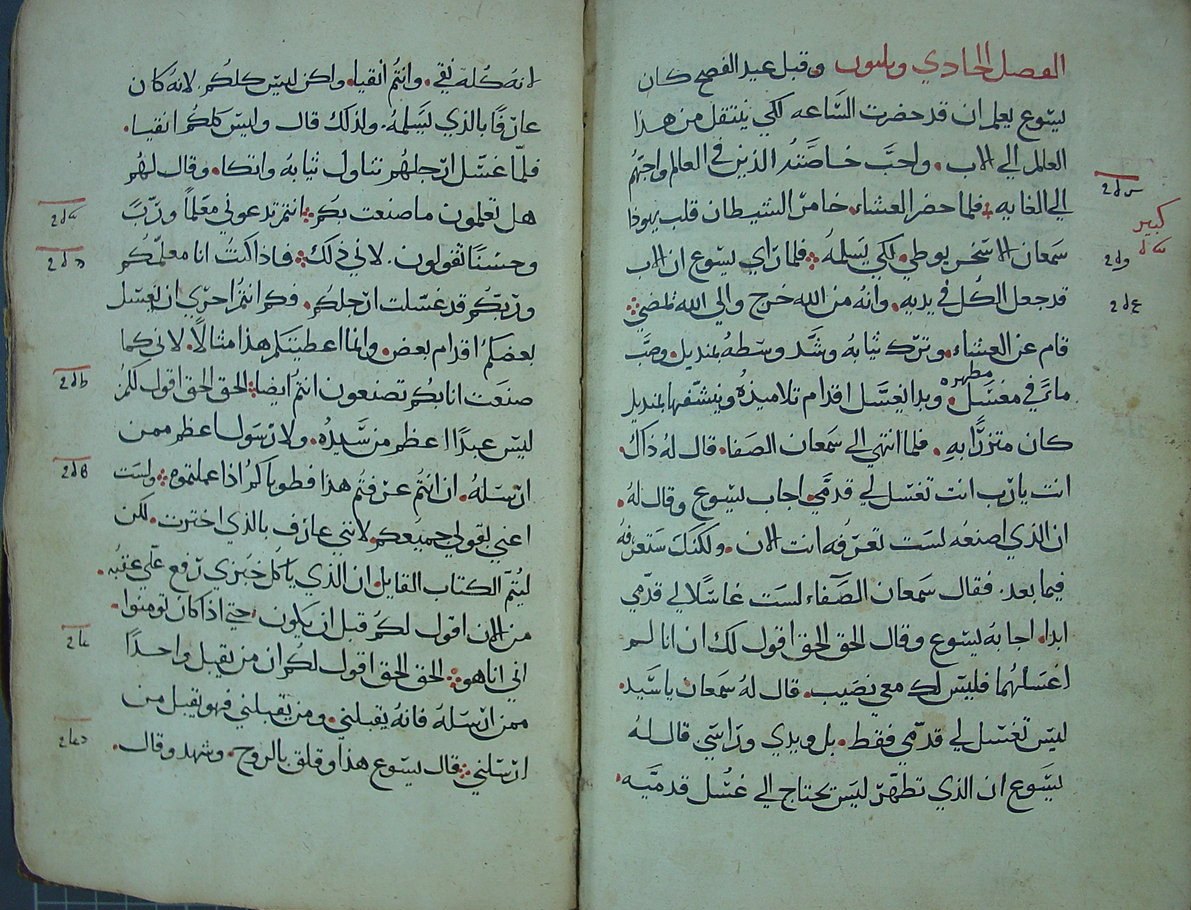 الفصل الحادي وثلثون وقبل عيد الفصح كان
يسوع يعلم ان قد حضرت الساعه لكي ينتقل من هذا
العالم الي الاب. واحب خاصته الذين في العالم واحبهم
الي الغايه فلما حضر العشاء خامر الشيطان قلب يهوذا
كبير
سمعان الاسخريوطي لكي يسلمه فلما راي يسوع ان الاب
قد جعل الكل في يديه. وانه من الله خرج والي الله يمضي
قام عن العشاء. وترك ثيابه وشد وسطه بمنديل وصب
مطهره
ماء في مغسل. وبدا يغسل اقدام تلاميذه وينشفها بمنديل
كان متزرًا به. فلما انتهي الي سمعان الصفا. قال له ذاك
انت يا رب انت تغسل لي قدمي. اجاب يسوع وقال له.
ان الذي اصنعه لست تعرفه انت الان. ولكنك ستعرفه
فيما بعد. فقال سمعان الصفاء لست غاسلا لي قدمي
ابدا. اجابه يسوع وقال الحق الحق اقول لك ان انا لم
اغسلهما فليس لك معي نصيب. قال له سمعان يا سيد.
ليس تغسل لي قدمي فقط. بل ويدي وراسي. قال له
يسوع ان الذي تطهر ليس يحتاج الي غسل قدميه
انه كله نقي. وانتم انقيا. ولكن ليس كلكم. لانه كان
عارفًا بالذي يسلمه. ولذلك قال وليس كلكم انقيا.
فلما غسل ارجلهم تناول ثيابه واتكا. وقال لهم
هل تعلمون ما صنعت بكم انتم تدعوني معلماً وربً
وحسنًا تقولون. لاني ذلك فاذا كنت انا معلمكم
وربكم قد غسلت ارجلكم. فكم انتم احري ان يغسل
بعضكم اقدام بعض. وانما اعطيتكم هذا مثالًا. لاني كما
صنعت انا بكم تصنعون انتم ايضا الحق الحق اقول لكم
ليس عبدًا اعظم من سيده. ولا رسول اعظم ممن
ارسله. ان انتم عرفتم هذا فطوباكم اذا عملتموه وليست
اعني بقولي جميعكم لانني عارف بالذي اخترت. لكن
ليتم الكتاب القايل ان الذي ياكل خبزي رفع علي عقبه.
من الان اقول لكم قبل ان يكون. حتي اذا كان تومنوا.
اني انا هو الحق الحق اقول لكم ان من يقبل واحدًا
ممن ارسله فانه يقبلني. ومن يقبلني فهو يقبل من
ارسلني قال يسوع هذا وقلق بالروح. وشهد وقال.